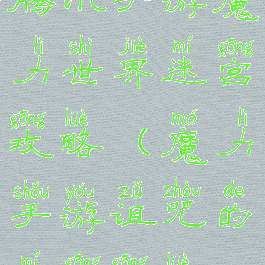 游魔
lì shì jiè mí gōng
力世界迷宫
gōng lüè mó lì
攻略(魔力
shǒu yóu zǔ zhòu de
手游诅咒的
mí gōng gōng lüè